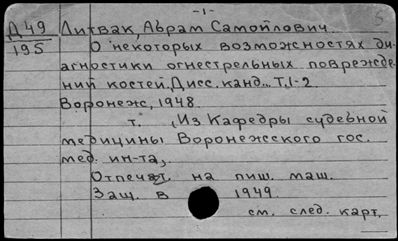 -1-
5
Д 49 Литвак, Абрам Самойлович.
195 О некоторых возможностях ди-
агностики огнестрельных поврежде-
ний костей. Дисс. канд... Т. 1-2
Воронеж, 1948.
т. , Из Кафедры судебной
медицины Воронежского гос.
мед. ин-та,
Отпечат на пиш. маш.
Защ. в 1949.
см. след. карт.